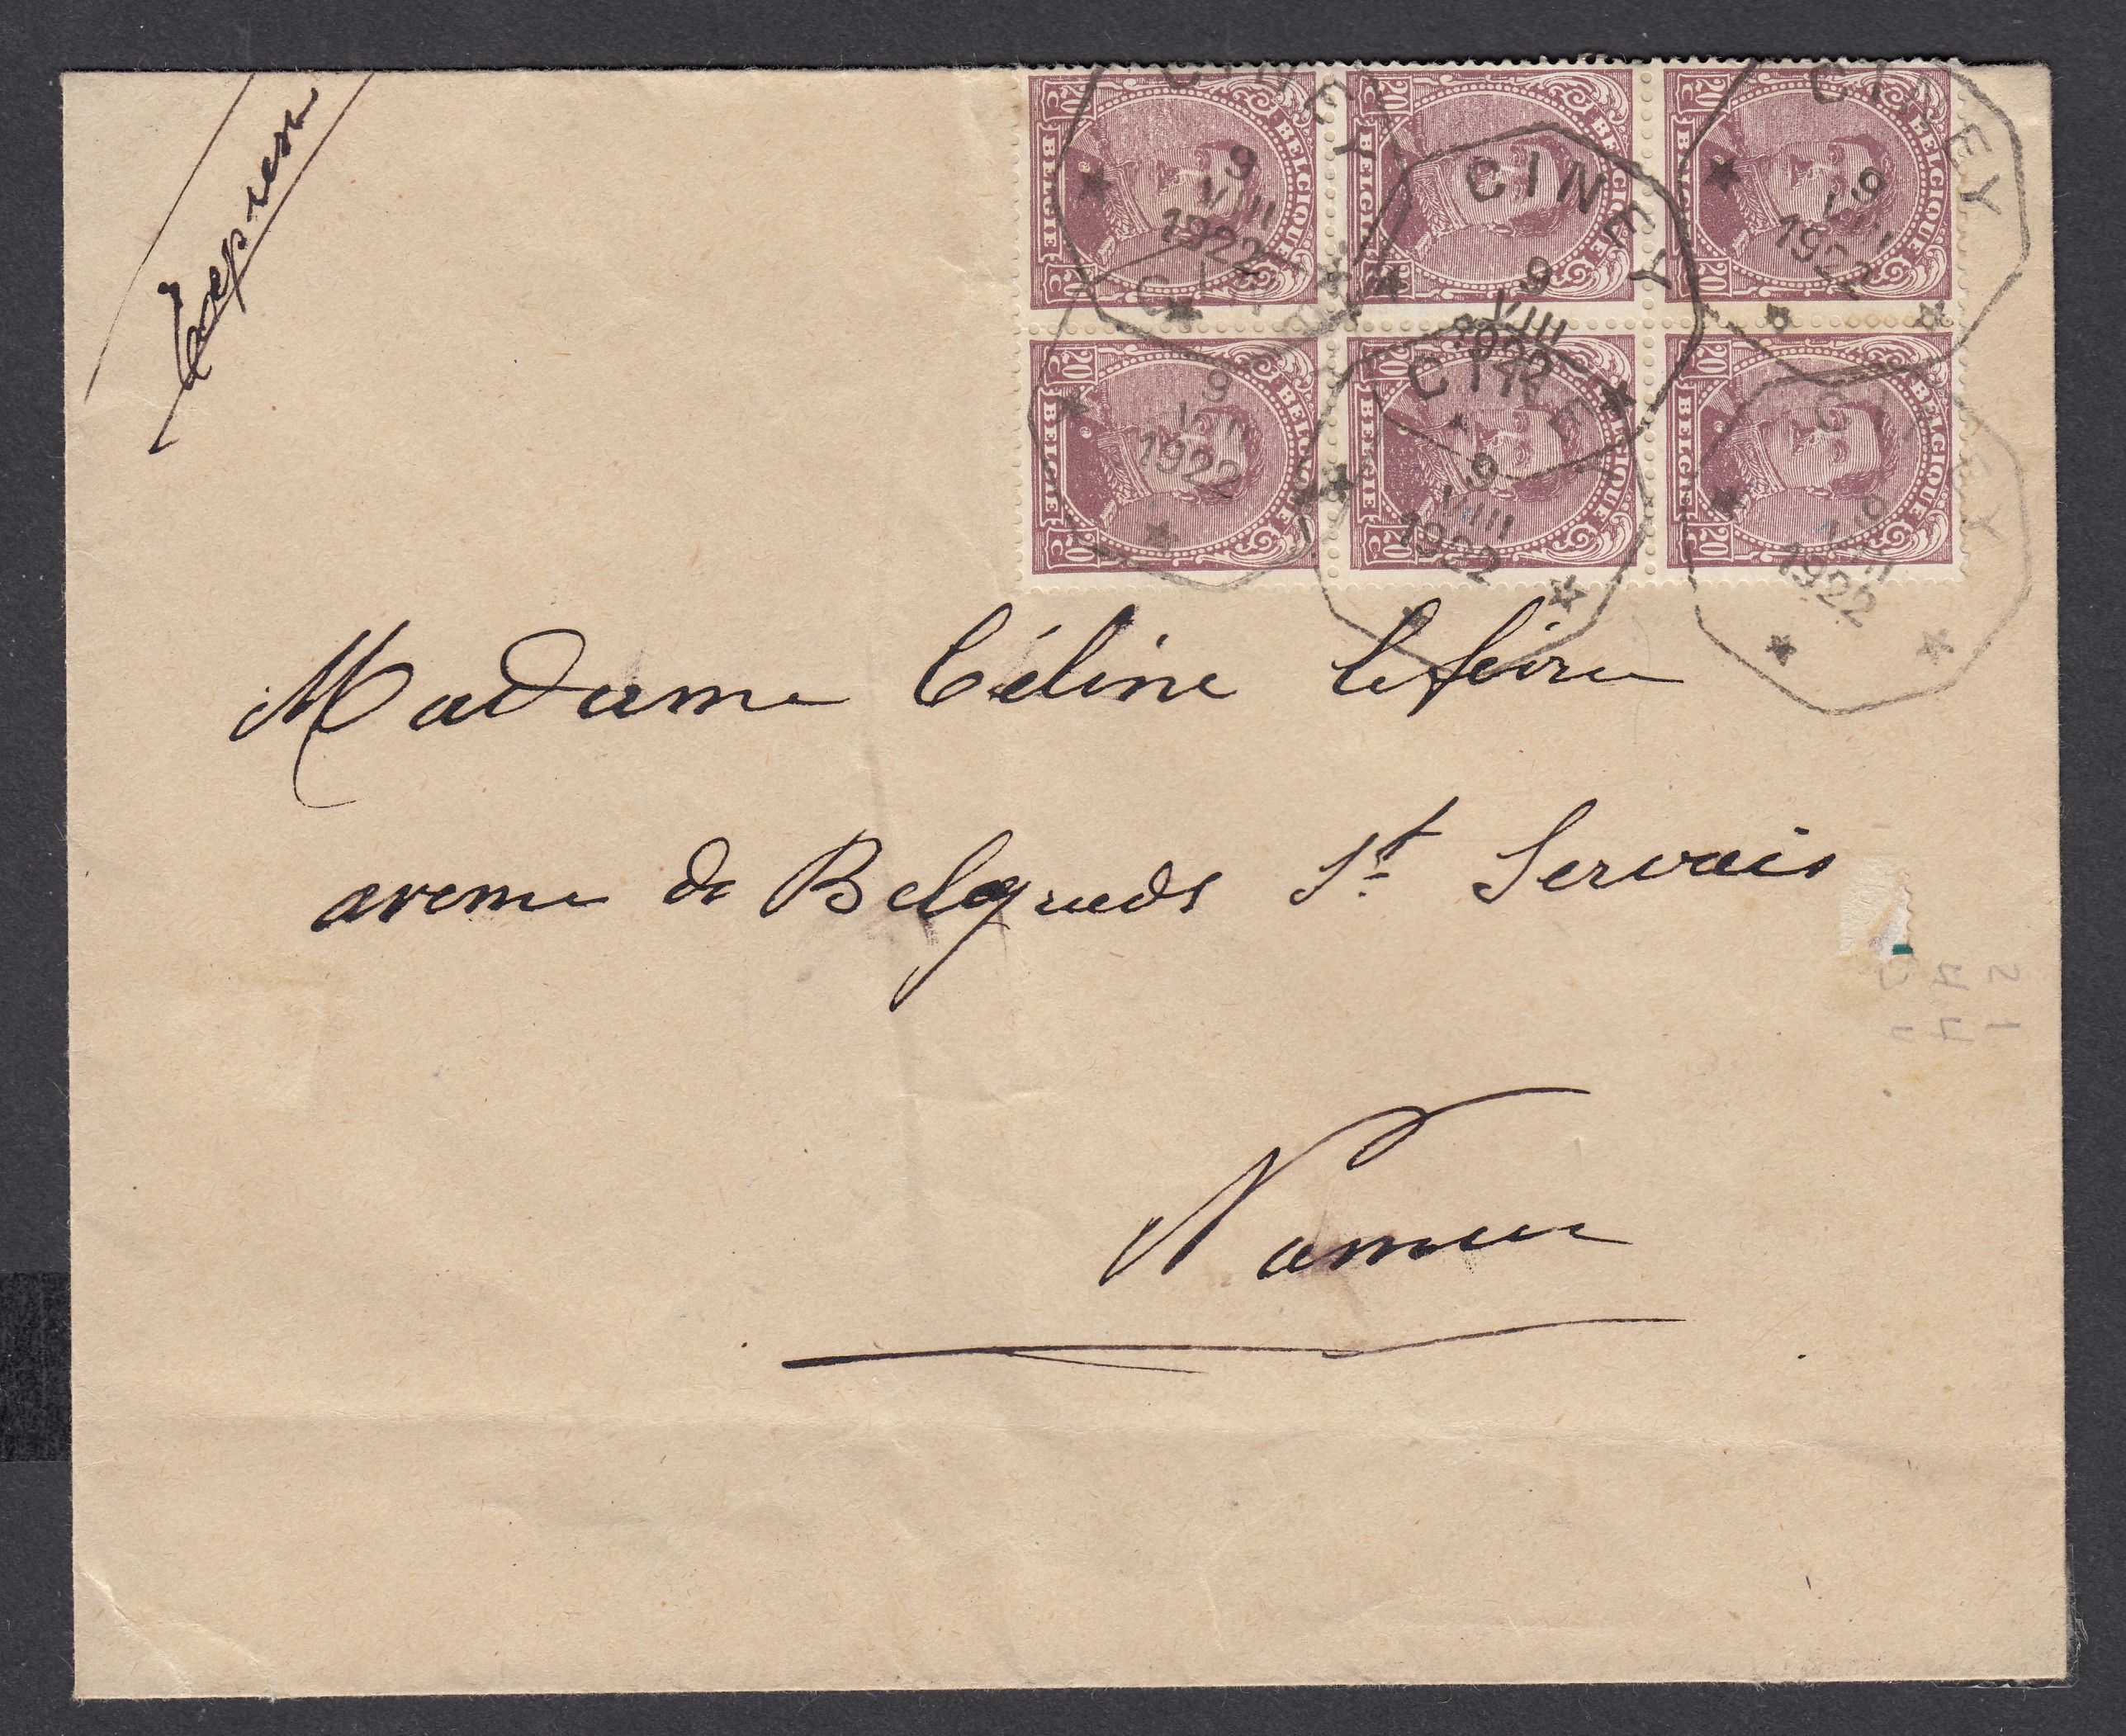 Expres
CINEY
9
VIII
1922
CINEY
9
VIII
1922
CINEY
9
VIII
1922
9
VIII
1922
CINEY
9
VIII
1922
CINEY
9
VIII
1922
20 C BELGIE BELGIQUE 20 C
20 C BELGIE BELGIQUE 20 C
20 C BELGIE BELGIQUE 20 C
20 C BELGIE BELGIQUE 20 C
20 C BELGIE BELGIQUE 20 C
20 C BELGIE BELGIQUE 20 C
Madame Céline
avenue de Belgrade St Servais
Namur